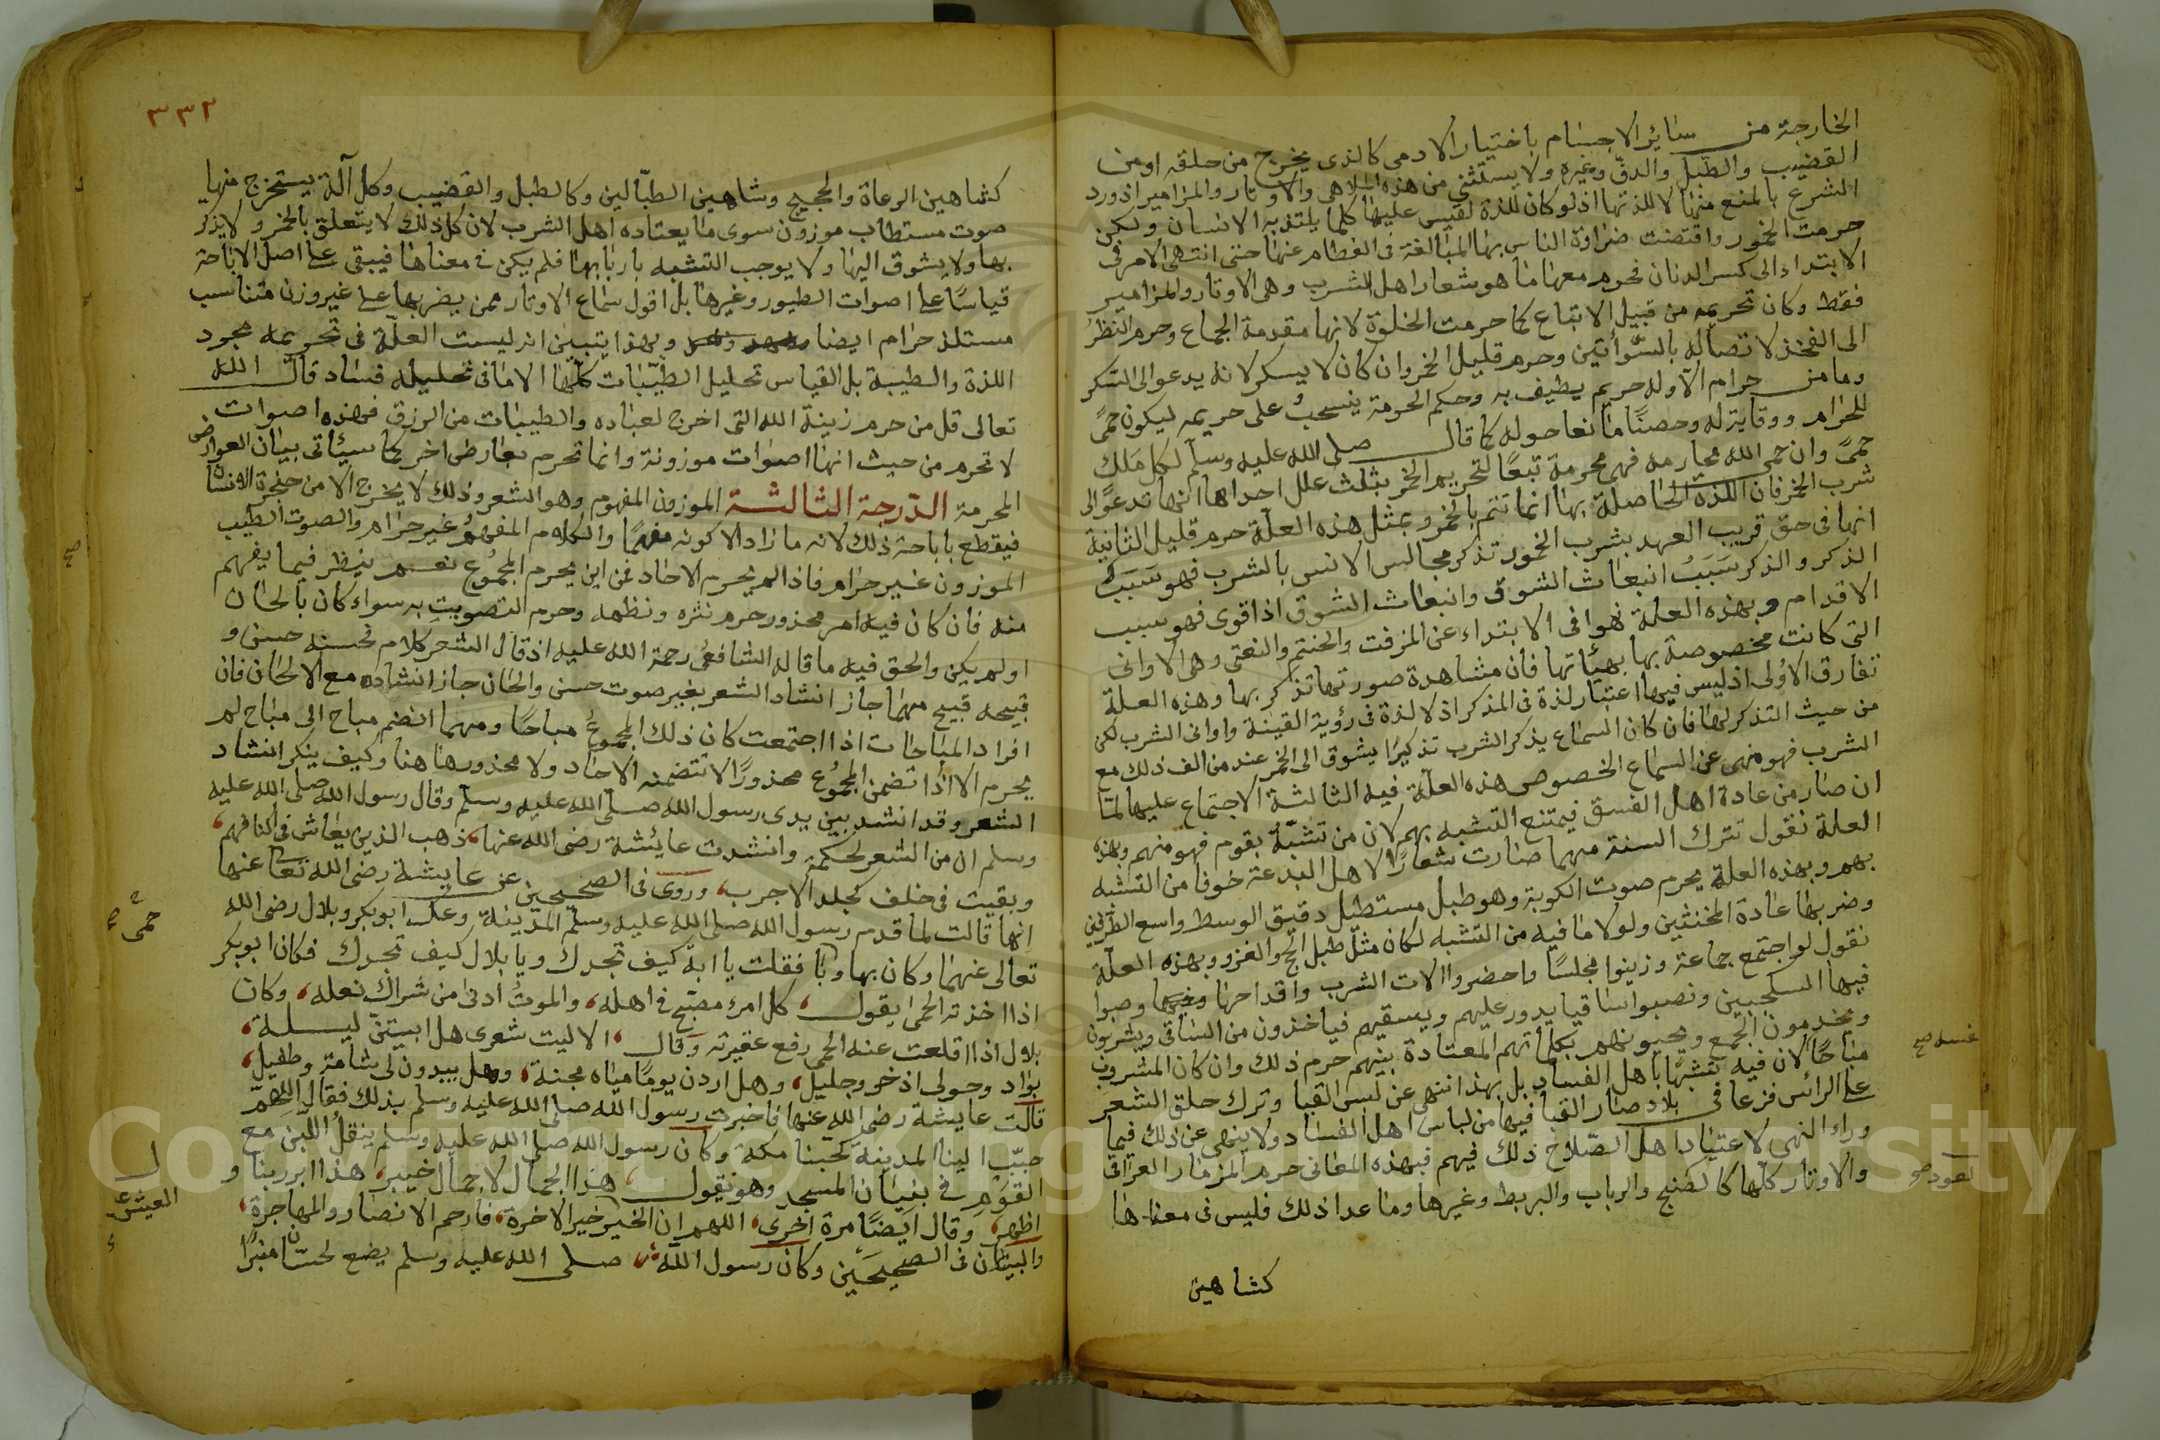 الخارجة من سائر الاجسام باختيار الادمى كالذى يخرج من حلقه او من
القضيب والطبل والدف وغيره ولا يستثنى من هذه الملاهى والاوتار والمزامير اذ ورد
الشرع بالمنع منها لا للذتها اذ لو كان للذة لقيس عليها كلما يلتذ به الانسان ولكن
حرمت الخمور واقتضت ضراوة الناس بها المبالغة فى الفطام عنها حتى انتهى الامر فى
الابتداء الى كسر الدنان فحرم معها ما هو شعار اهل الشرب وهى الاوتار والمزامير
فقط وكان تحريمه من قبيل الاتباع كما حرمت الخلوة لانها مقدمة الجماع وحرم النظر
الى الفخذ لاتصاله بالسوأتين وحرم قليل الخمر وان كان لا يسكر لانه يدعو الى السكر
وما من حرام الا وله حريم يطيف به وحكم الحرمة ينسحب على حريمه ليكون حمى
للحرام ووقاية له وحصنا مانعا حوله كما قال صلى الله عليه وسلم لكل ملك
حمى وان حمى الله محارمه فهى محرمة تبعا لتحريم الخمر بثلث علل احداها انها تدعو الى
شرب الخمر فان اللذة الحاصلة بها انما تتم بالخمر وبمثل هذه العلة حرم قليل الثانية
انها فى حق قريب العهد بشرب الخمور تذكر مجالس الانس بالشرب فهو سبب
الذكر والذكر سبب انبعاث الشوق وانبعاث الشوق اذا قوى فهو سبب
الاقدام وبهذه العلة نهوا فى الابتداء عن المزفت والحنتم والنقير وهى الاوانى
التى كانت مخصوصة بها بهيئاتها فان مشاهدة صورتها تذكر بها وهذه العلة
تفارق الاولى اذ ليس فيها اعتبار لذة فى المذكر اذ لا لذة فى رؤية القينة واوانى الشرب لكن
من حيث التذكر لها فان كان السماع يذكر الشرب تذكيرا يشوق الى الخمر عند من الف ذلك مع
الشرب فهو منهى عن السماع الخصوص هذه العلة فيه الثالثة الاجتماع عليها لما
ان صار من عادة اهل الفسق فيمتنع التشبه بهم لان من تشبه بقوم فهو منهم وبهذه
العلة نقول تترك السنة مهما صارت شعارا لاهل البدعة خوفا من التشبه
بهم وبهذه العلة يحرم صوت الكوبة وهو طبل مستطيل دقيق الوسط واسع الطرفين
وضربها عادة المخنثين ولولا ما فيه من التشبه لكان مثل طبل الحج والغزو وبهذه العلة
نقول لو اجتمع جماعة وزينوا مجلسا واحضروا الات الشرب واقداحها وصبوا
فيها السكنجبين ونصبوا ساقيا يدور عليهم ويسقيهم فياخذون من الساقى ويشربون
ويخدمون الجمع ويحيونهم بكلماتهم المعتادة بينهم حرم ذلك وان كان المشروب
مباحا لان فيه تشبها باهل الفساد بل بهذا انتهى عن لبس القبا وترك حلق الشعر
على الرائس قزعا فى بلاد صار القبا فيها من لباس اهل الفساد ولا ينهى عن ذلك فيما
وراء النهر لاعتياد اهل الصلاح ذلك فيهم فبهذه المعانى حرم المزمار العراقى
والاوتار كلها كالصنج والرباب والبربط وغيرها وما عدا ذلك فليس فى معناها
كشاهين
العود صح
٣٣٢
كشاهين الرعاة والحجيج وشاهين الطبالين وكالطبل والقضيب وكل آلة يستخرج منها
صوت مستطاب موزون سوى ما يعتاده اهل الشرب لان كل ذلك لا يتعلق بالخمر ولا يذكر
بها ولا يشوق اليها ولا يوجب التشبه باربابها فلم يكن فى معناها فيبقى على اصل الاباحة
قياسا على اصوات الطيور وغيرها بل اقول سماع الاوتار ممن يضربها على غير وزن متناسب
مستلذ حرام ايضا وبهذا يتبين انه ليست العلة فى تحريمه مجرد
اللذة والطيبة بل القياس تحليل الطيبات كلها الا ما فى تحليله فساد قال الله
تعالى قل من حرم زينة الله التى اخرج لعباده والطيبات من الرزق فهذه اصوات
لا تحرم من حيث انها اصوات موزونة وانما تحرم بعارض اخر كما سيئاتى بيان العوارض
المحرمة الدرجة الثالثة الموزون المفهوم وهو الشعر وذلك لا يخرج الا من حنجرة الانسان
فيقطع باباحة ذلك لانه ما زاد الا كونه مفهما والكلام المفهوم غير حرام والصوت الطيب
الموزون غير حرام فاذا لم يحرم الاحاد فمن اين يحرم المجموع نعم ينظر فيما يفهم
منه فان كان فيه امر محذور حرم نثره ونظمه وحرم التصويت به سواء كان بالحان
او لم يكن والحق فيه ما قاله الشافعى رحمة الله عليه اذ قال الشعر كلام فحسنه حسن و
قبيحه قبيح مهما جاز انشاد الشعر بغير صوت حسن والحان جاز انشاده مع الالحان فان
افراد المباحات اذا اجتمعت كان ذلك المجموع مباحا ومهما انضم مباح الى مباح لم
يحرم الا اذا تضمن المجموع محذورا لا تتضمنه الاحاد ولا محذور هاهنا وكيف ينكر انشاد
الشعر وقد انشد بين يدى رسول الله صلى الله عليه وسلم وقال رسول الله صلى الله عليه
وسلم ان من الشعر لحكمة وانشدت عائشة رضى الله عنها ذهب الذين يعاش فى اكنافهم
وبقيت فى خلف كجلد الاجرب وروى فى الصحيحين عن عايشة رضى الله تعا عنها
انها قالت لما قدم رسول الله صلى الله عليه وسلم المدينة وعك ابو بكر وبلال رضى الله
تعالى عنهما وكان بها وبا فقلت يا ابه كيف تجدك ويا بلال كيف تجدك فكان ابو بكر
اذا اخذته الحمى يقول كل امرئ مصبح فى اهله والموت ادنى من شراك نعله وكان
بلال اذا اقلعت عنه الحمى رفع عقيرته وقال الا ليت شعرى هل ابيتن ليلة
بواد وحولى اذخر وجليل وهل اردن يوما مياه مجنة وهل يبدون لى شامة وطفيل
قالت عايشة رضى الله عنها فاخبرت رسول الله صلى الله عليه وسلم بذلك فقال اللهم
حبب الينا المدينة كحبنا مكة وكان رسول الله صلى الله عليه وسلم ينقل اللبن مع
القوم فى بنيان المسجد وهو يقول هذا الجمال لا جمال خيبر هذا ابر ربنا و
اظهر وقال ايضا مرة اخرى اللهم ان الخير خير الاخرة فارحم الانصار والمهاجرة
والبيتان فى الصحيحين وكان رسول الله صلى الله عليه وسلم يضع لحسان منبرا
حمى
العيش
Copyright © King Saud University